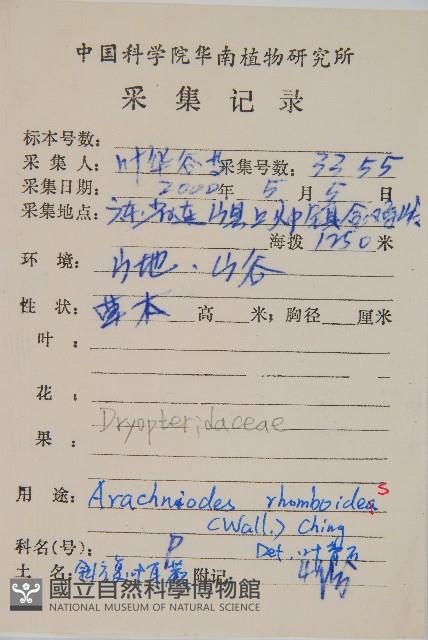 中国科学院华南植物研究所
采集记录
标本号数：
采集人：叶华谷 采集号数：3355
采集日期：2000年5月5日
采集地点：
海拨1250米
环境：山地·山谷
性状：草本 高 米；胸径 厘米
叶：
花
Dryopteridaceae
果：
用途：Arachniodes rhomboideas
(Wall.) Ching
科名(号)：P Det. 叶
土名：斜方复叶耳蕨 附记：
國立自然科學博物館
NATIONAL MUSEUM OF NATURAL SCIENCE